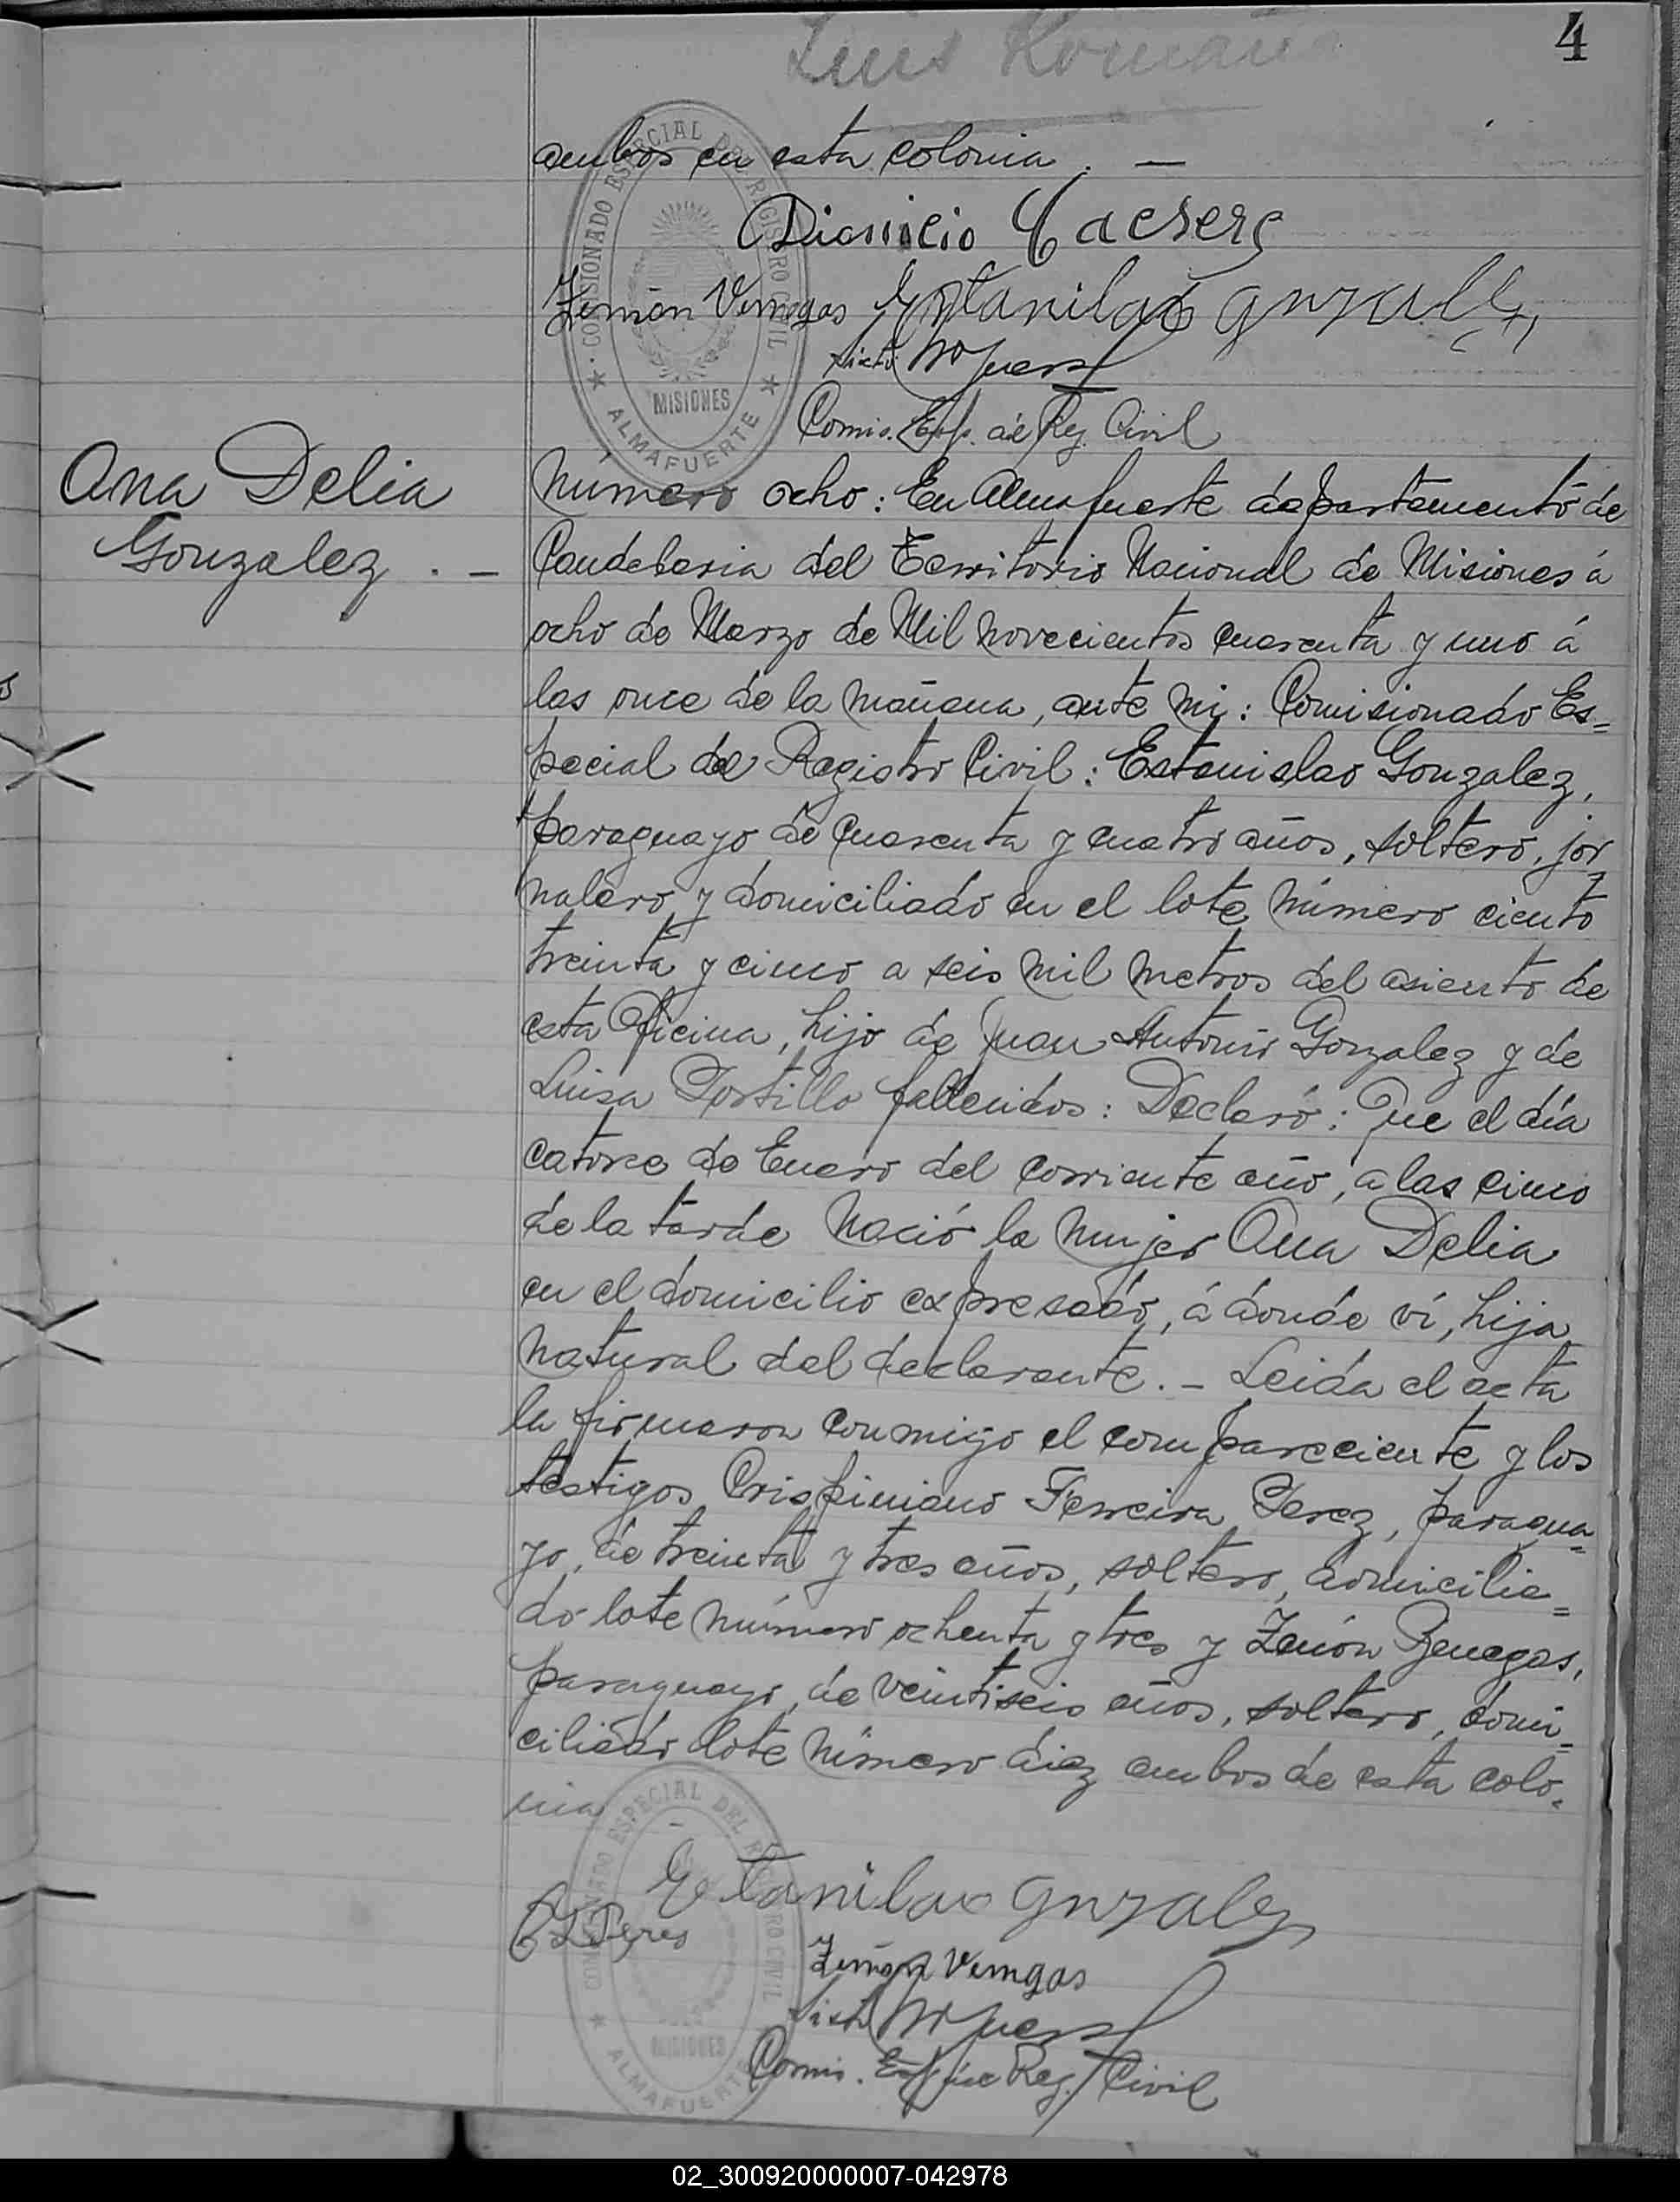 Luis Romaña
4
ambos en esta colonia. —
COMISIONADO ESPECIAL DEL REGISTRO CIVIL
MISIONES
ALMAFUERTE
Dionicio Cacsers
Zenón Venegas Estanilao Gonzalez
Comis. Esp. de Reg. Civil
Ana Delia
Gonzalez. —
Número ocho: En Almafuerte departamento de
Candelaria del Territorio Nacional de Misiones á
ocho de Marzo de Mil novecientos cuarenta y uno á
las once de la mañana, ante mi: Comisionado Es=
pecial del Registro Civil: Estanislao Gonzalez,
paraguayo de cuarenta y cuatro años, soltero, jor
nalero y domiciliado en el lote número ciento
treinta y cinco a seis mil metros del asiento de
esta Oficina, hijo de Juan Antonio Gonzalez y de
Luisa Portillo fallecidos: Declaró: Que el día
catorce de Enero del corriente año, a las cinco
de la tarde nació la mujer Ana Delia
en el domicilio expresado, á donde ví, hija
natural del declarante. – Leida el acta
la firmaron conmigo el compareciente y los
testigos Crispiniano Ferreira Perez, paragua=
yo, de treinta y tres años, soltero, domicilia=
do lote número ochenta y tres y Zenón Benegas,
paraguayo, de veintiseis años, soltero, domi=
ciliado lote número diez ambos de esta colo=
nia
COMISIONADO ESPECIAL DEL REGISTRO CIVIL
MISIONES
ALMAFUERTE
Estanilao Gonzalez
Peres
Zenón Venegas
Comis. Esp. de Reg. Civil
02_300920000007-042978